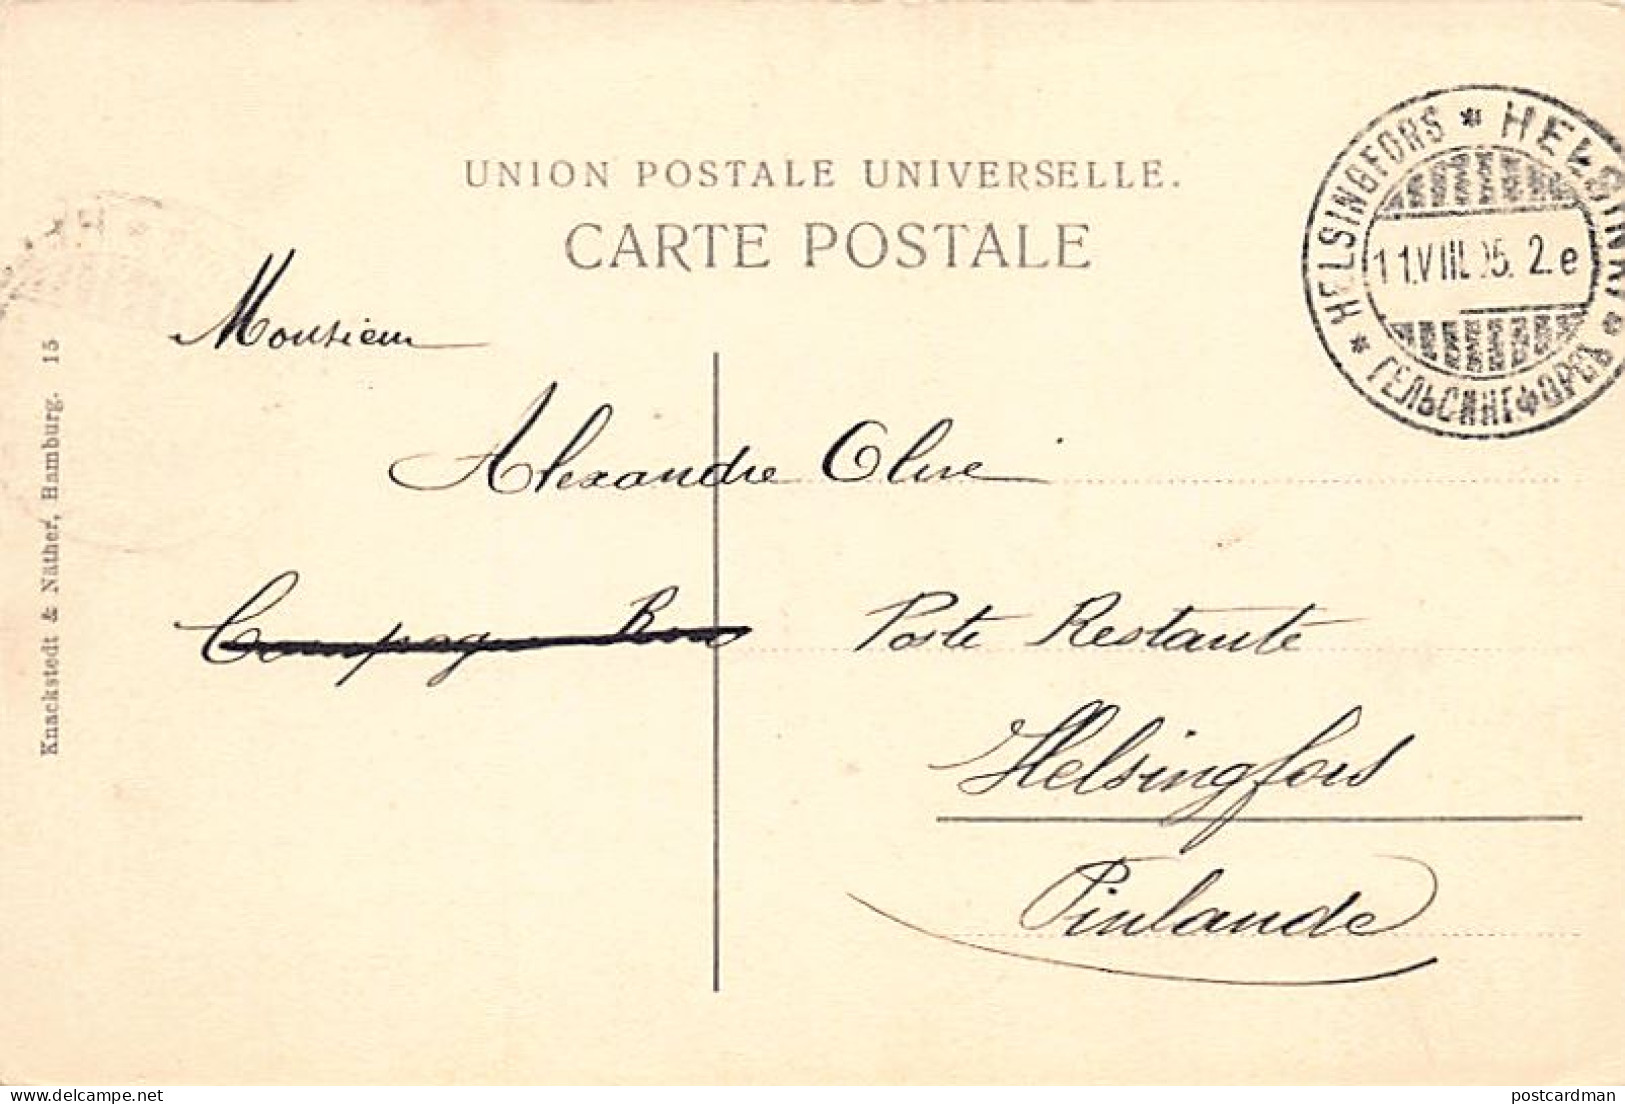 UNION POSTALE UNIVERSELLE.
CARTE POSTALE
HELSINGFORS * HELSINKI * ГЕЛЬСИНГФОРСЪ *
11.VIII.05. 2.e
Monsieur
Alexandre Olive
Compagnie
Poste Restante
Helsingfors
Finlande
Knackstedt & Näther, Hamburg. 15
delcampe.net
postcardman